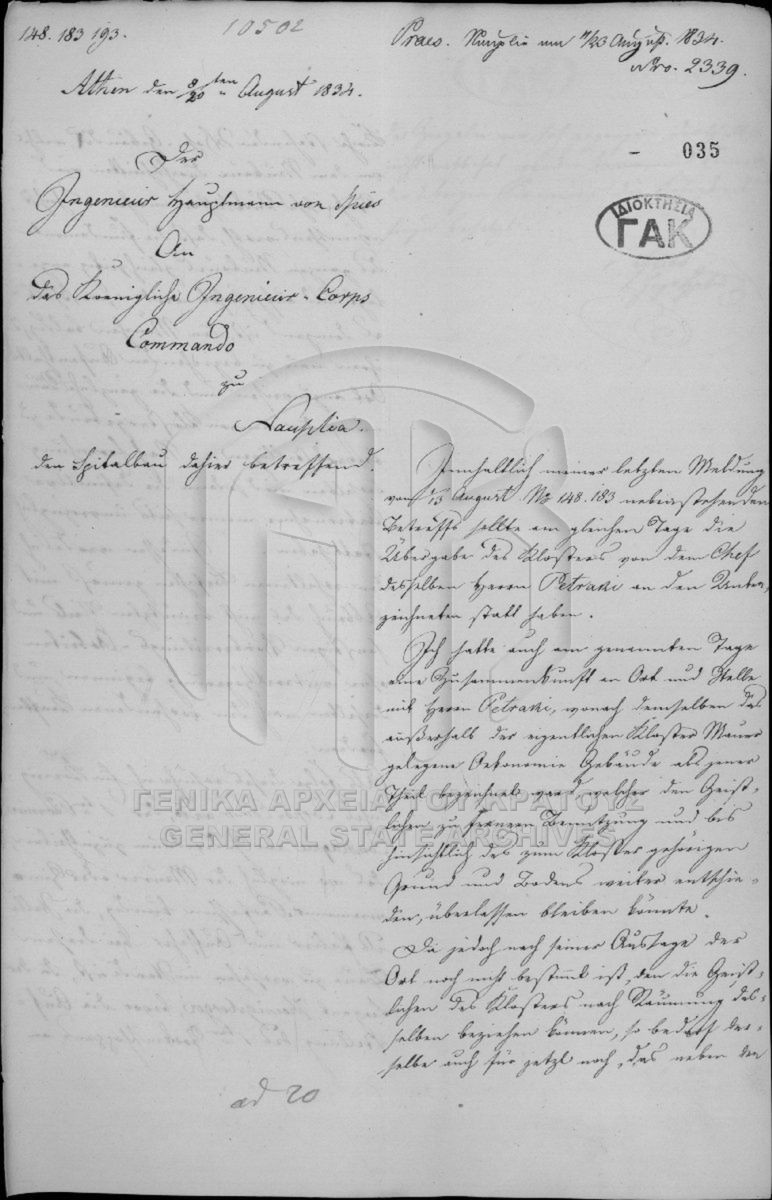 148. 183 193.
10502
Praes. Nauplia am 11/23 August. 1834.
Nro. 2339.
Athen den 8/20 ten August 1834.
035
ΙΔΙΟΚΤΗΣΙΑ
ΓΑΚ
Der
Ingenieur Hauptmann von Spies
An
das Koenigliche Ingenieur-Corps
Commando
zu
Nauplia.
den Spitalbau dahier betreffend.
Innhaltlich meiner letzten Meldung
vom August No 148.183 nebenstehenden
Betreffs sollte am gleichen Tage die
Übergabe des Klosters von dem Chef
desselben Herrn Petraki an den Unter,
zeichneten statt haben.
Ich hatte auch am genannten Tage
eine Zusammenkunft an Ort und Stelle
mit Herrn Petraki, wonach demselben das
außerhalb der eigentlichen Kloster Mauer
gelegene Oekonomie Gebäude als jener
Theil bezeichnet ward, welcher den Geist,
lichen zu Benutzung und bis
hinsichtlich des zum Kloster gehörigen
Grund und Bodens weiter entschie-
den, überlassen bleiben könnte.
Da jedoch nach seiner Aussage der
Ort noch nicht bestimmt ist, den die Geist-
lichen des Klosters nach Räumung des-
selben beziehen können, so bedarf der-
selbe auch für jetzt noch, das neben den
ad 20
ΓΕΝΙΚΑ ΑΡΧΕΙΑ ΤΟΥ ΚΡΑΤΟΥΣ
GENERAL STATE ARCHIVES